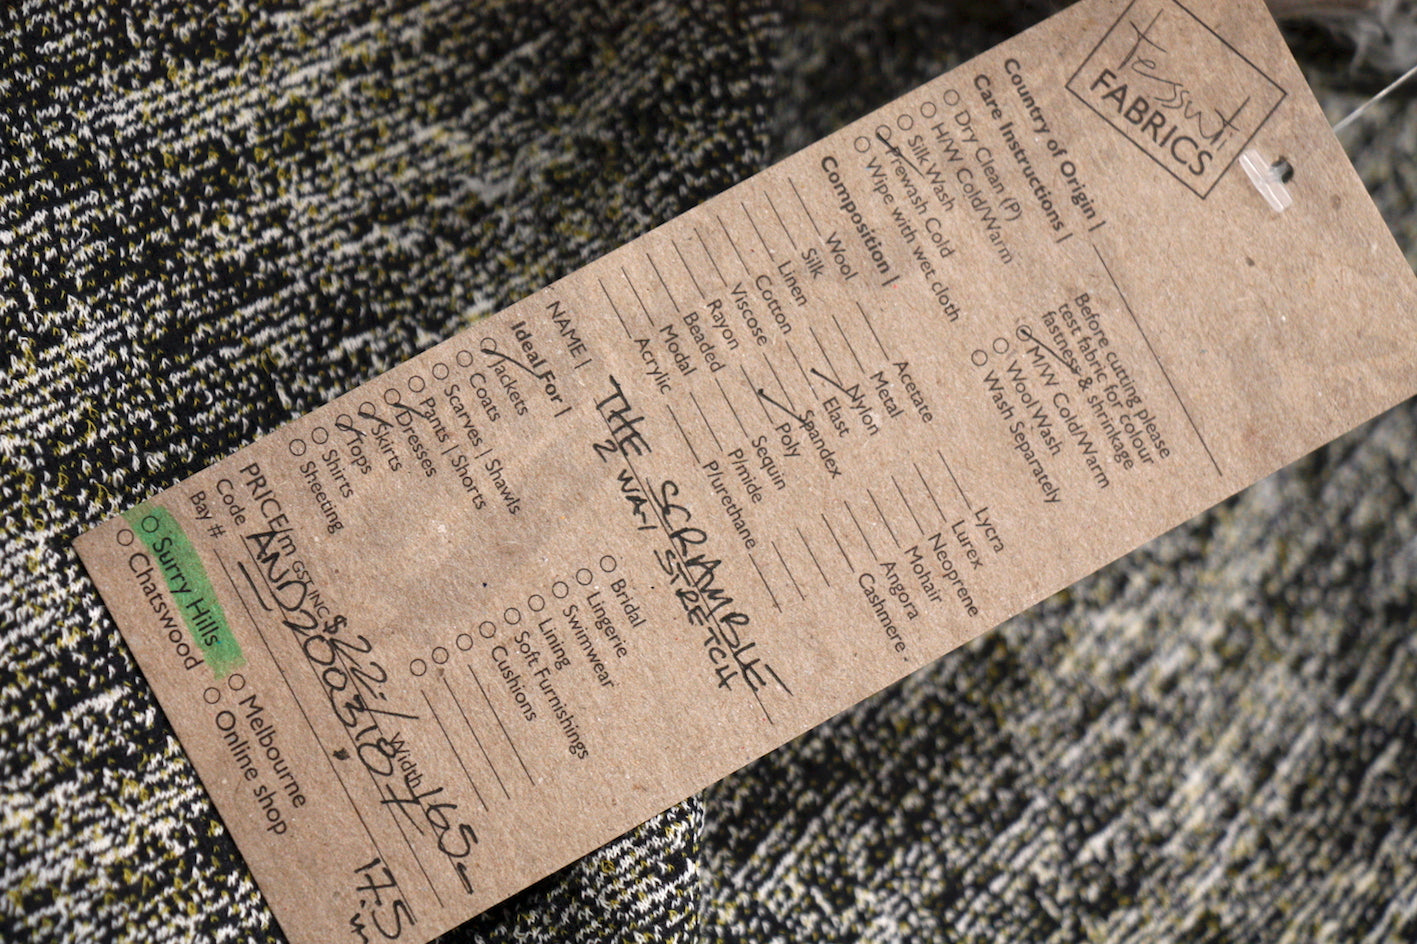 tessuti
FABRICS
Country of Origin |
Care Instructions |
Dry Clean (P)
H/W Cold/Warm
Silk Wash
Prewash Cold
Wipe with wet cloth
Before cutting please
test fabric for colour
fastness & shrinkage
M/W Cold/Warm
Wool Wash
Wash Separately
Composition |
Wool
Silk
Linen
Cotton
Viscose
Rayon
Beaded
Modal
Acrylic
Acetate
Metal
Nylon
Elast
Spandex
Poly
Sequin
P/mide
P/urethane
Lycra
Lurex
Neoprene
Mohair
Angora
Cashmere
NAME | THE SCRAMBLE
2 WAY STRETCH
Ideal For |
Jackets
Coats
Scarves | Shawls
Pants | Shorts
Dresses
Skirts
Tops
Shirts
Sheeting
Bridal
Lingerie
Swimwear
Lining
Soft Furnishings
Cushions
PRICE/m GST INC $22:/ Width 165
Code
Bay #
17.5
m
Surry Hills
Chatswood
Melbourne
Online shop